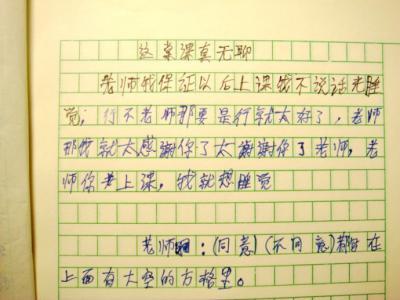 这堂课真无聊
老师我保证以后上课我不说话光睡
觉，行不老师那要是行就太好了，老师
那我就太感謝你了太謝謝你了老师，老
师你老上课，我就想睡觉
老师：（同意）（不同意）都在
上面有大空的方格里。